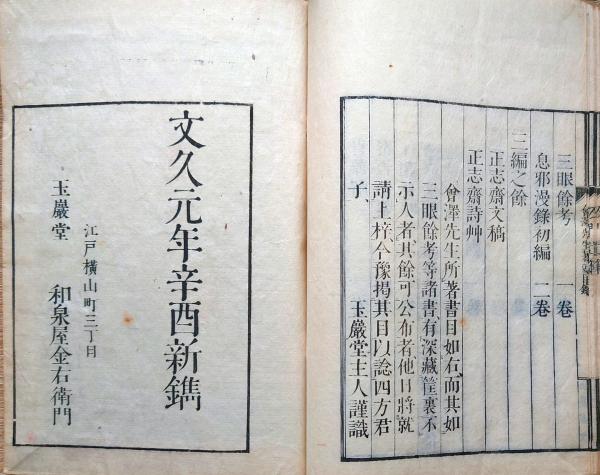 三眼餘考 一卷
息邪漫錄初編 二卷
三編之餘
正志齋文稿
正志齋詩艸
會澤先生所著書目如右、而其如
三眼餘考等諸書、有深藏筐裏不
示人者、其餘可公布者、他日將就
請上梓、今豫揭其目以諗四方君
子、 玉巖堂主人謹識
文久元年辛酉新鐫
江戸横山町三丁目
玉巖堂 和泉屋金右衛門